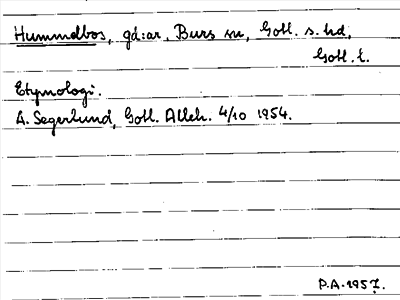 Hummelbos, gd:ar, Burs sn, Gotl. s. hd,
Gotl. l.
Etymologi.
A. Segerlund, Gotl. Alleh. 4/10 1954.
P.A. 1957.